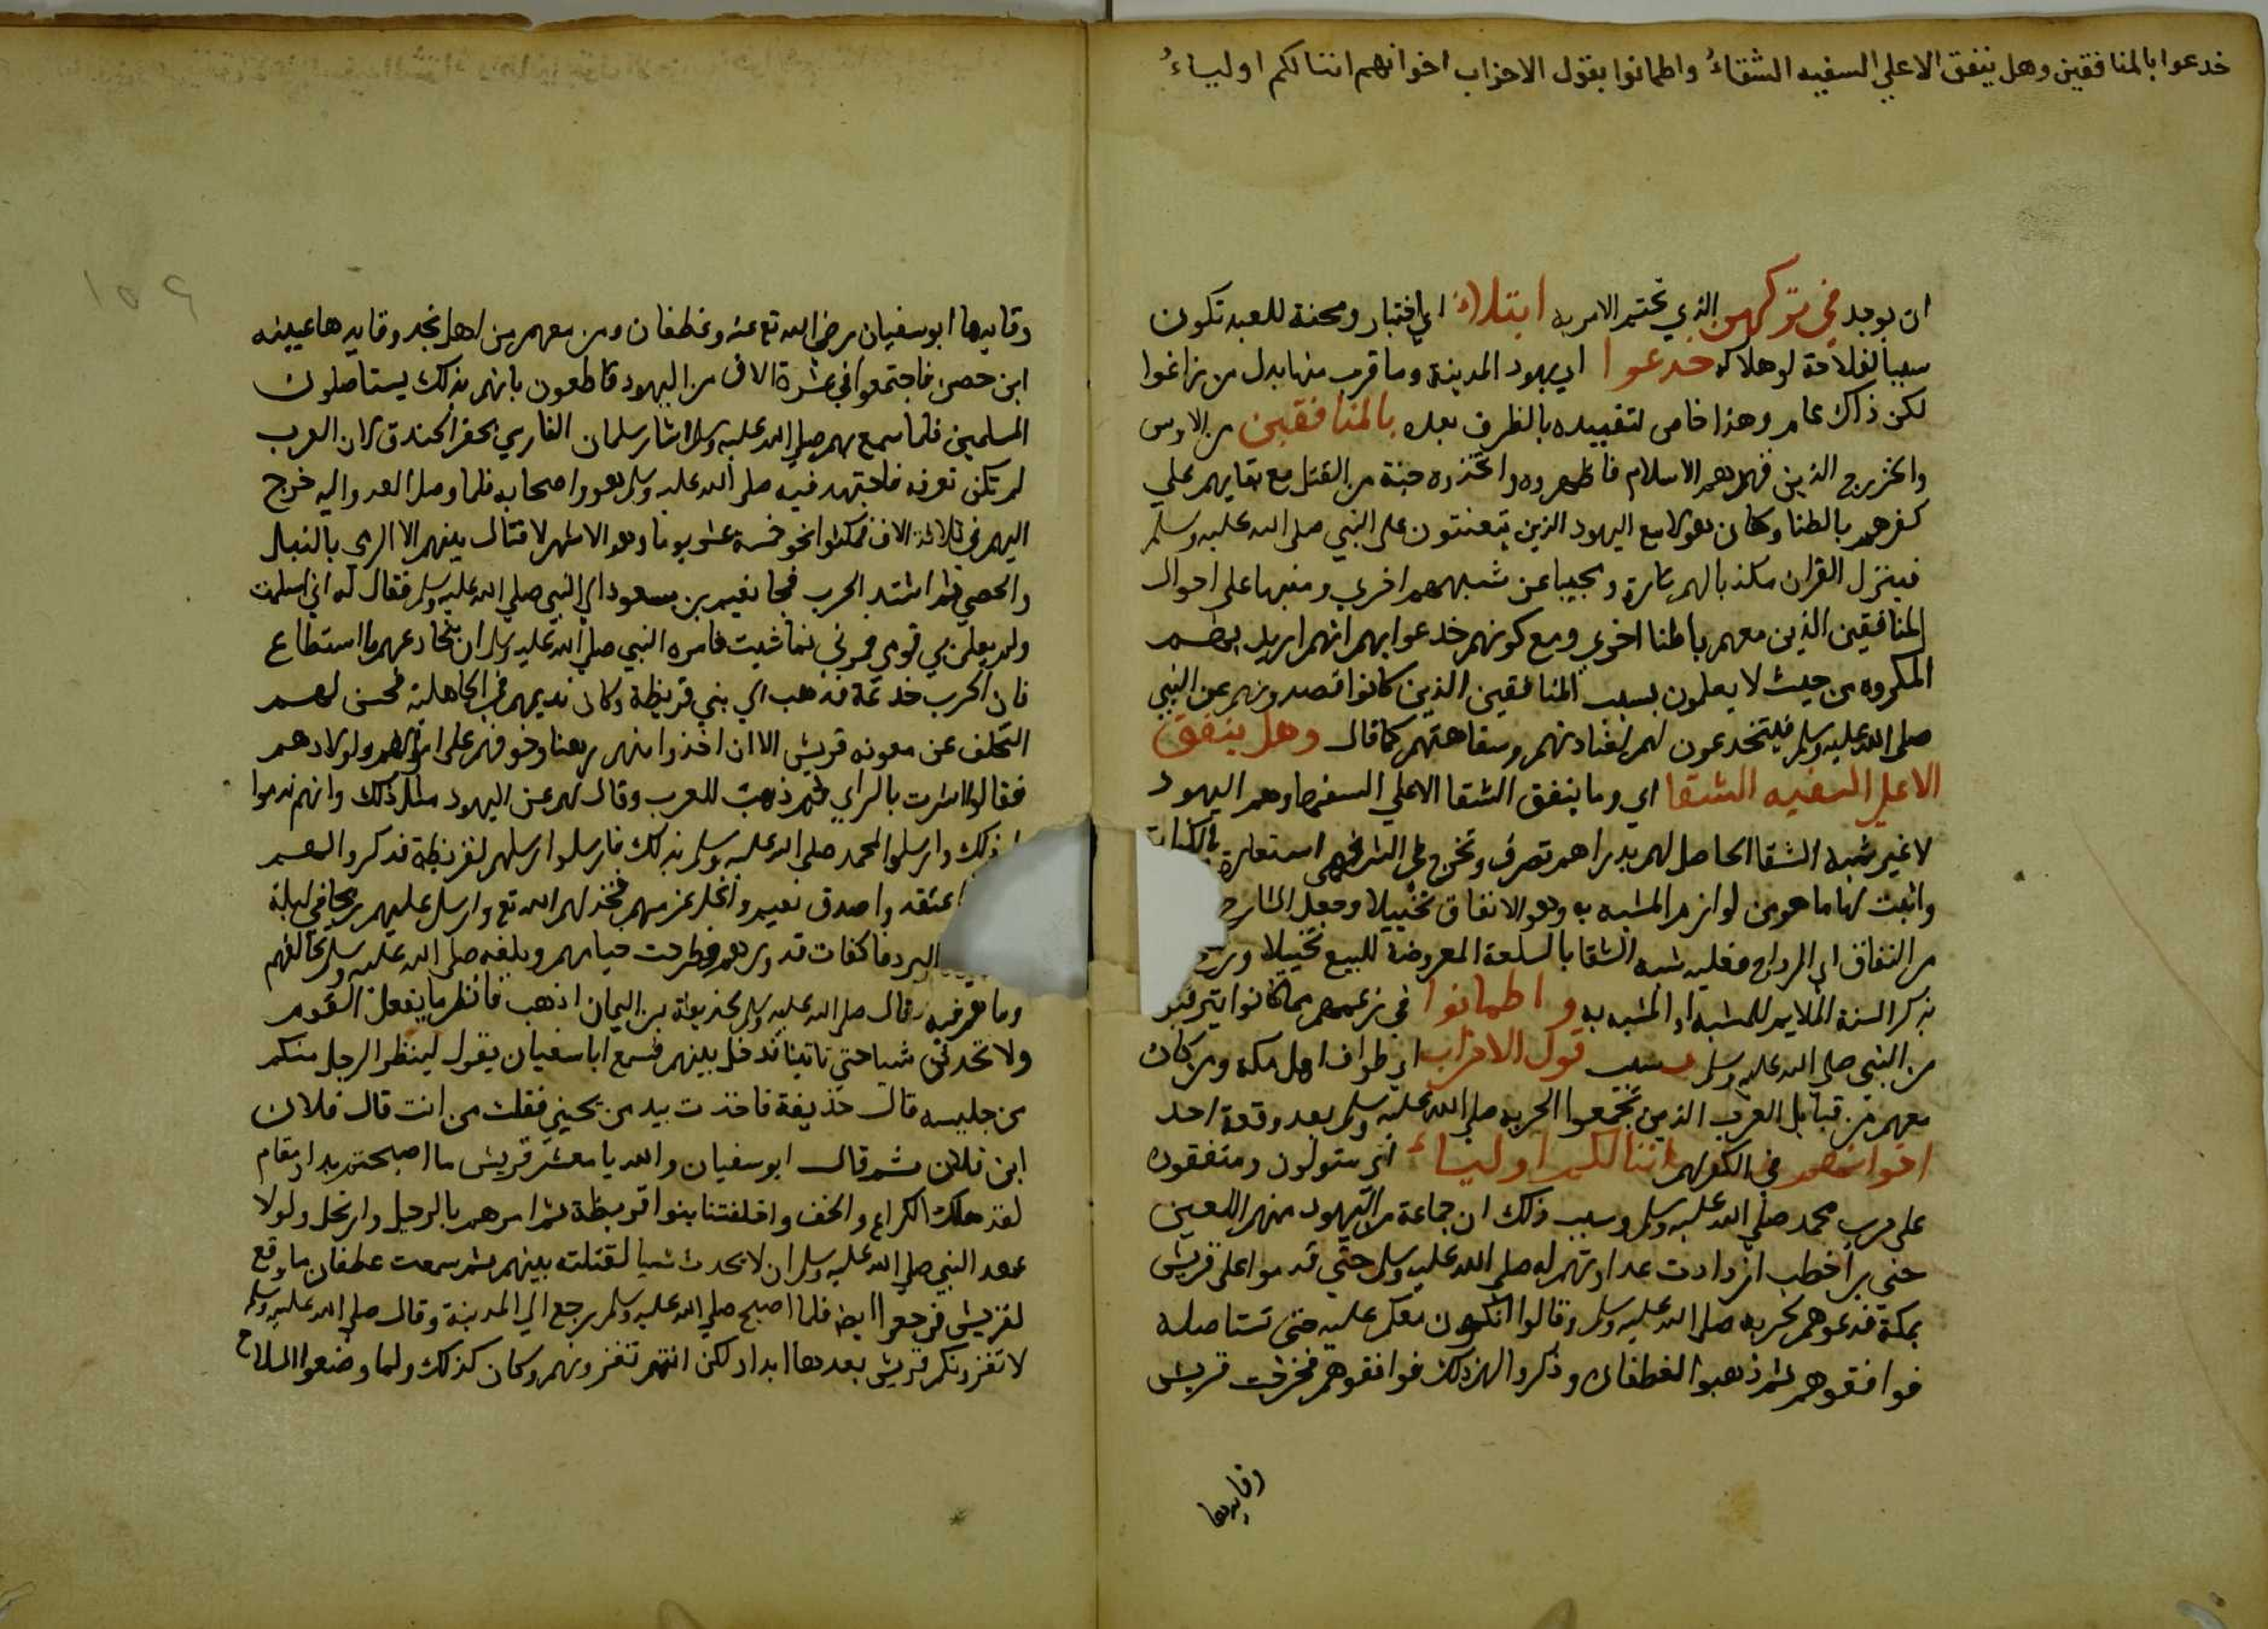 خدعوا بالمنافقين وهل ينفق الا علي السفيه الشقاءُ واطمانوا بقول الاحزاب اخوانهم اننا لكم اولياءُ
ان يوجد في تركهن الذي تحتم الامر به ابتلاءٌ اي اختبار ومحنة للعبد تكون
سببا لفلاحه او هلاكه خدعوا اي يهود المدينة وما قرب منها بدل من زاغوا
لكن ذاك عام وهذا خاص لتقييده بالظرف بعده بالمنافقين من الاوس
والخزرج الذين قهرهم الاسلام فاظهروه واتخذوه جنة من القتل مع بقايهم علي
كفرهم باطنا وكان هولا مع اليهود الذين يتعنتون على النبي صلى الله عليه وسلم
فينزل القران مكذبا لهم تارة ومجيبا عن شبههم اخري ومنبها على احوال
المنافقين الذين معهم باطنا اخري ومع كونهم خدعوا بهم انهم اريد بهم
المكروه من حيث لا يعلمون بسبب المنافقين الذين كانوا قصدونهم عن النبي
صلى الله عليه وسلم فيتخدعون لهم لغباوتهم وسفاهتهم كما قال وهل ينفق
الا علي السفيه الشقا اي وما ينفق الشقا الا علي السفها وهم اليهود
لا غير شبه الشقا الحاصل لهم بدراهم تصرف وتخرج على فهي استعارة بالكناية
واثبت لها ما هو من لوازم المشبه به وهو الانفاق تخييلا وجعل الشارح
من النفاق اي الرواج فعليه شبه الشقا بالسلعة المعروضة للبيع تخييلا
بذكر السنة الملايم للمشبه او المشبه به واطمانوا في زعمهم مما كانوا يترقبو
من النبي صلي الله عليه وسلم بسبب قول الاحزاب اي طواف اهل مكة ومن كان
معهم من قبايل العرب الذين تجمعوا لحربه صلي الله عليه وسلم بعد وقعة احد
اخوانهم في الكفر لهم اننا لكم اولياءُ اي متولون ومتفقون
على حرب محمد صلي الله عليه وسلم وسبب ذلك ان جماعة من اليهود منهم اللعين
حيي بن اخطب ازدادت عداوتهم له صلى الله عليه وسلم حتي قدموا على قريش
بمكة فدعوهم لحربه صلى الله عليه وسلم وقالوا انكون معكم عليه حتى نستاصله
فوافقوهم ثم ذهبوا لغطفان وذكروا لهم ذلك فوافقوهم فخرجت قريش
وقايدها
١٥٩
وقايدها ابو سفيان رضي الله تع عنه وغطفان ومن معهم من اهل نجد وقايدها عيينه
ابن حصن فاجتمعوا في عشرة الاف من اليهود قاطعون بانهم بذلك يستاصلون
المسلمين فلما سمع بهم صلي الله عليه وسلم اشار سلمان الفارسي بحفر الخندق لان العرب
لم تكن تعرفه فاجتهد فيه صلى الله عليه وسلم هو واصحابه فلما وصل العدو اليه خرج
اليهم في ثلاثة الاف فمكثوا نحو خمسة عشر يوما وهو الاشهر لا قتال بينهم الا الرمي بالنبال
والحصي ثم اشتد الحرب فجا نعيم بن مسعود الي النبي صلي الله عليه وسلم فقال له اني اسلمت
ولم يعلم بي قومي فمرني بما شيت فامره النبي صلي الله عليه وسلم ان يخادعهم ما استطاع
فان الحرب خدعة فذهب الي بني قريظة وكان نديمهم في الجاهلية فحسن لهم
التخلف عن معونه قريش الا ان اخذوا منهم رهنا وخوفهم على اموالهم واولادهم
فقالوا اشرت بالراي ثم ذهب للعرب وقال لهم عن اليهود مثل ذلك وانهم ندموا
ذلك وارسلوا لمحمد صلى الله عليه وسلم بذلك فارسلوا رسلهم لقريظة فذكروا لهم
اعتقد واصدق نعيم وانحل عزمهم فخذلهم الله تع وارسل عليهم ريحا في ليلة
البرد فاكفات قدورهم وطرحت خيامهم وبلغه صلى الله عليه وسلم تخالفهم
وما هم فيه فقال صلى الله عليه وسلم لحذيفة بن اليمان اذهب فانظر ما يفعل القوم
ولا تحدثن شيا حتى تاتينا فدخل بينهم فسمع ابا سفيان يقول لينظر الرجل منكم
من جليسه قال حذيفة فاخذت بيد من يحيني فقلت من انت قال فلان
ابن فلان ثم قال ابو سفيان والله يا معشر قريش ما اصبحتم بدار مقام
لقد هلك الكراع والخف واخلفتنا بنوا قريظة ثم امرهم بالرحيل وارتحل ولولا
عهد النبي صلي الله عليه وسلم ان لا يحدث شيا لقتلته بينهم ثم سمعت غطفان ما وقع
لقريش فرجعوا ايضا فلما اصبح صلي الله عليه وسلم رجع الي المدينة وقال صلي الله عليه وسلم
لا تغزونكم قريش بعدها ابدا ولكن انتم تغزونهم وكان كذلك ولما وضعوا السلاح